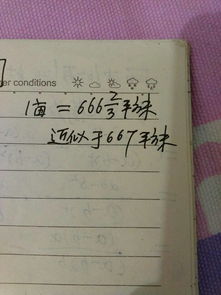 er conditions
1亩 = 666 2/3 平方米
近似于667平方米